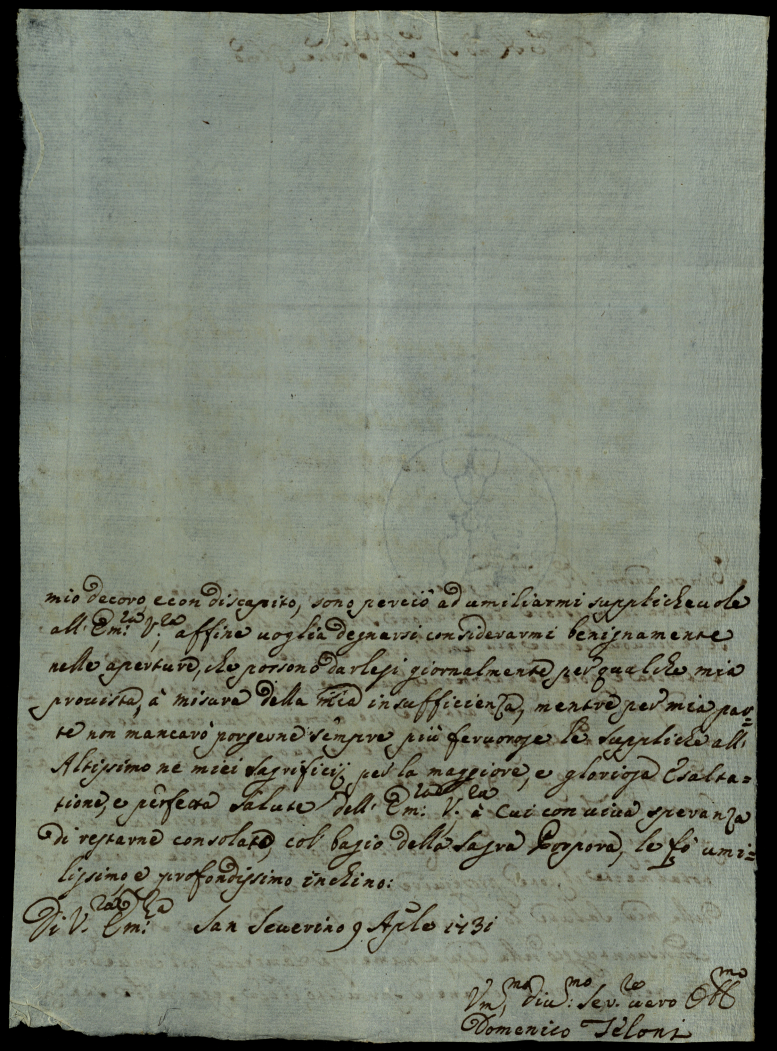 mio decoro, e con discapito, sono perciò ad umiliarmi supplicheuole
all' Em.ᶻᵃ V.ʳᵃ affine uoglia degnarsi considerarmi benignamente
nelle aperture, che possono darlesi giornalmente per qualche mia
prouista, à misura della mia insufficienza, mentre per mia par=
te non mancarò porgerne sempre più feruorose le suppliche all'
Altissimo ne miei sagrificij per la maggiore, e gloriosa Esalta-
tione, e perfetta salute dell' Em.ᶻᵃ V.ʳᵃ à cui con uiua speranza
di restarne consolato, col bagio della Sagra Porpora, le fò umi=
lissimo, e profondissimo inchino:
Di V.ʳᵃ Em.ᶻᵃ San Seuerino 9 Ap̃le 1731
Vm.ᵐᵒ diu.ᵐᵒ Se.ʳᵉ uero Obb.ᵐᵒ
Domenico Teloni